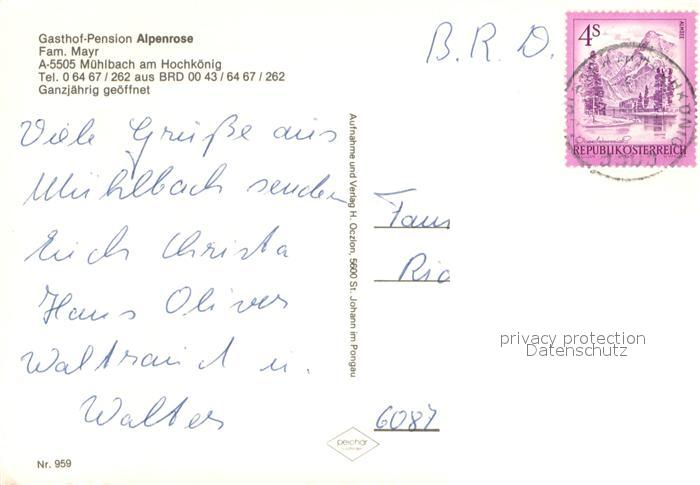 Gasthof-Pension Alpenrose
Fam. Mayr
A-5505 Mühlbach am Hochkönig
Tel. 0 64 67 / 262 aus BRD 00 43 / 64 67 / 262
Ganzjährig geöffnet
B. R. D.
4S
ALMSEE
REPUBLIK ÖSTERREICH
Viele Grüße aus
Mühlbach senden
Erich Christa
Hans Oliver
Waltraud u.
Walter
Aufnahme und Verlag H. Oczlon, 5600 St. Johann im Pongau
Fam
Ric
privacy protection
Datenschutz
6087
pechar
Nr. 959